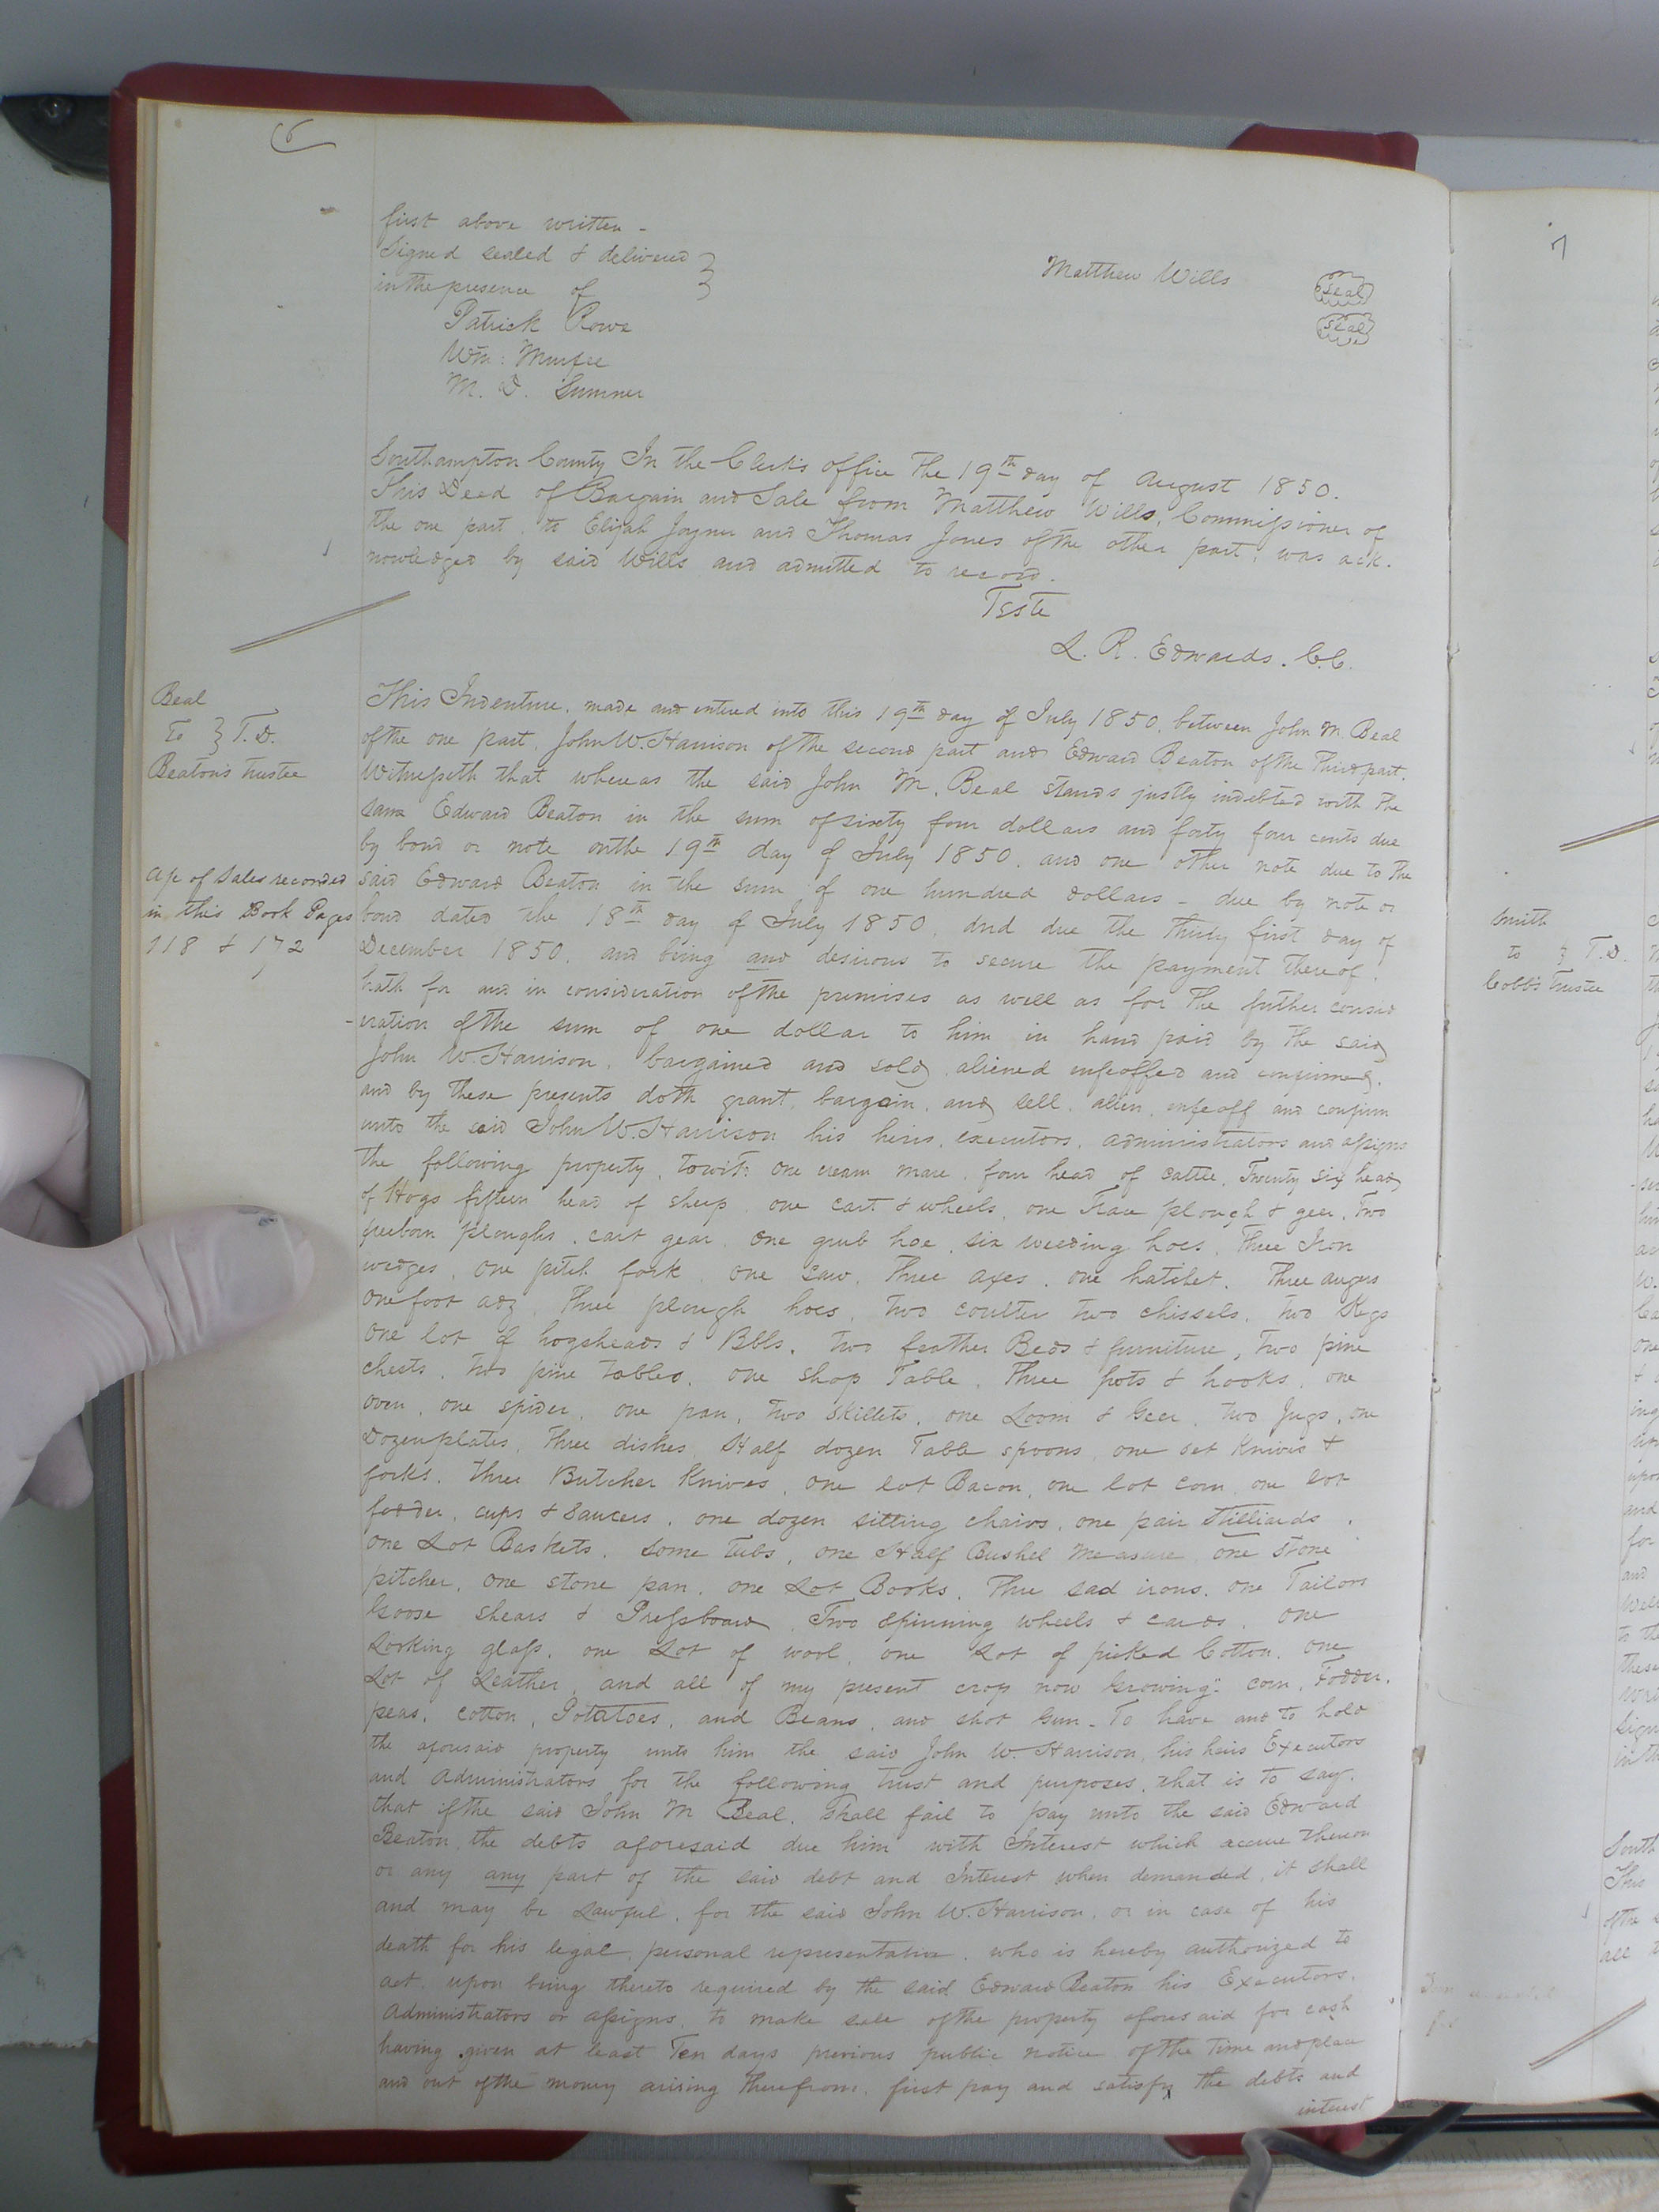 6
first above written -
Signed sealed & delivered }
in the presence of
Matthew Wills Seal
Seal
Patrick Rowe
Wm: Murfee
M. D. Sumner
Southampton County In the Clerk's office The 19th day of August 1850.
This Deed of Bargain and Sale from Matthew Wills, Commissioner of
the one part, to Elijah Joyner and Thomas Jones of the other part, was ack-
nowledged by said Wills and admitted to record.
Teste
L. R. Edwards. C.C.
Beal
To } T.D.
Beaton's Trustee
a/c of Sales recorded
in this Book Pages
118 & 172
This Indenture, made and entered into this 19th day of July 1850, between John M. Beal
of the one part, John W. Harrison of the second part and Edward Beaton of the Third part.
Witnesseth that whereas the said John M. Beal stands justly indebted with the
same Edward Beaton in the sum of sixty four dollars and forty four cents due
by bond or note on the 19th day of July 1850, and one other note due to the
said Edward Beaton in the sum of one hundred dollars - due by note or
bond dated the 18th day of July 1850, and due the thirty first day of
December 1850, and being and desirous to secure the payment thereof,
hath for and in consideration of the premises as well as for the futher consid
-eration of the sum of one dollar to him in hand paid by the said
John W. Harrison, bargained and sold, aliened enfeoffed and confirmed,
and by these presents doth grant, bargain, and sell, alien, enfeoff and confirm
unto the said John W. Harrison his heirs, executors, administrators and assigns
the following property, towit: one cream mare, four head of cattle, Twenty six head
of Hogs fifteen head of sheep, one cart & wheels, one Trace plough & geer, Two
freeborn ploughs, cart gear, one grub hoe, six weeding hoes, Three Iron
wedges, one pitch fork, one saw, three axes, one hatchet, Three augers
one foot adz, three plough hoes, two coulter two chissels, two Kegs
one lot of hogsheads & Bbls, two feather Beds & furniture, two pine
chests, two pine tables, one shop Table, Three pots & hooks, one
oven, one spider, one pan, two skillets, one Loom & Geer, two Jugs, one
Dozen plates, three dishes, Half dozen Table spoons, one set Knives &
forks, three Butcher Knives, one lot Bacon, one lot corn, one lot
fodder, cups & Saucers, one dozen sitting chairs, one pair Stilliards,
one Lot Baskets, some Tubs, one Half Bushel Measure, one Stone
pitcher, one stone pan, one Lot Books, Three sad irons, one Tailors
Goose shears & Pressboard, Two Spinning wheels & cards, one
Looking glass, one Lot of wool, one Lot of picked Cotton, one
Lot of Leather, and all of my present crop now Growing: corn, Fodder,
peas, cotton, Potatoes, and Beans, and shot Gun - To have and to hold
the aforesaid property unto him the said John W. Harrison, his heirs Executors
and Administrators for the following trust and purposes, that is to say,
that if the said John M Beal, shall fail to pay unto the said Edward
Beaton, the debts aforesaid due him with Interest which accrue thereon
or any any part of the said debt and Interest when demanded, it shall
and may be Lawful, for the said John W. Harrison, or in case of his
death for his legal, personal representative, who is hereby authorized to
act, upon being thereto required by the said Edward Beaton his Executors,
Administrators or assigns, to make sale of the property aforesaid for cash
having given at least Ten days previous public notice of the time and place
and out of the money arising therefrom, first pay and satisfy the debts and
interest
7
Smith
to } T.D.
Cobb's Trustee